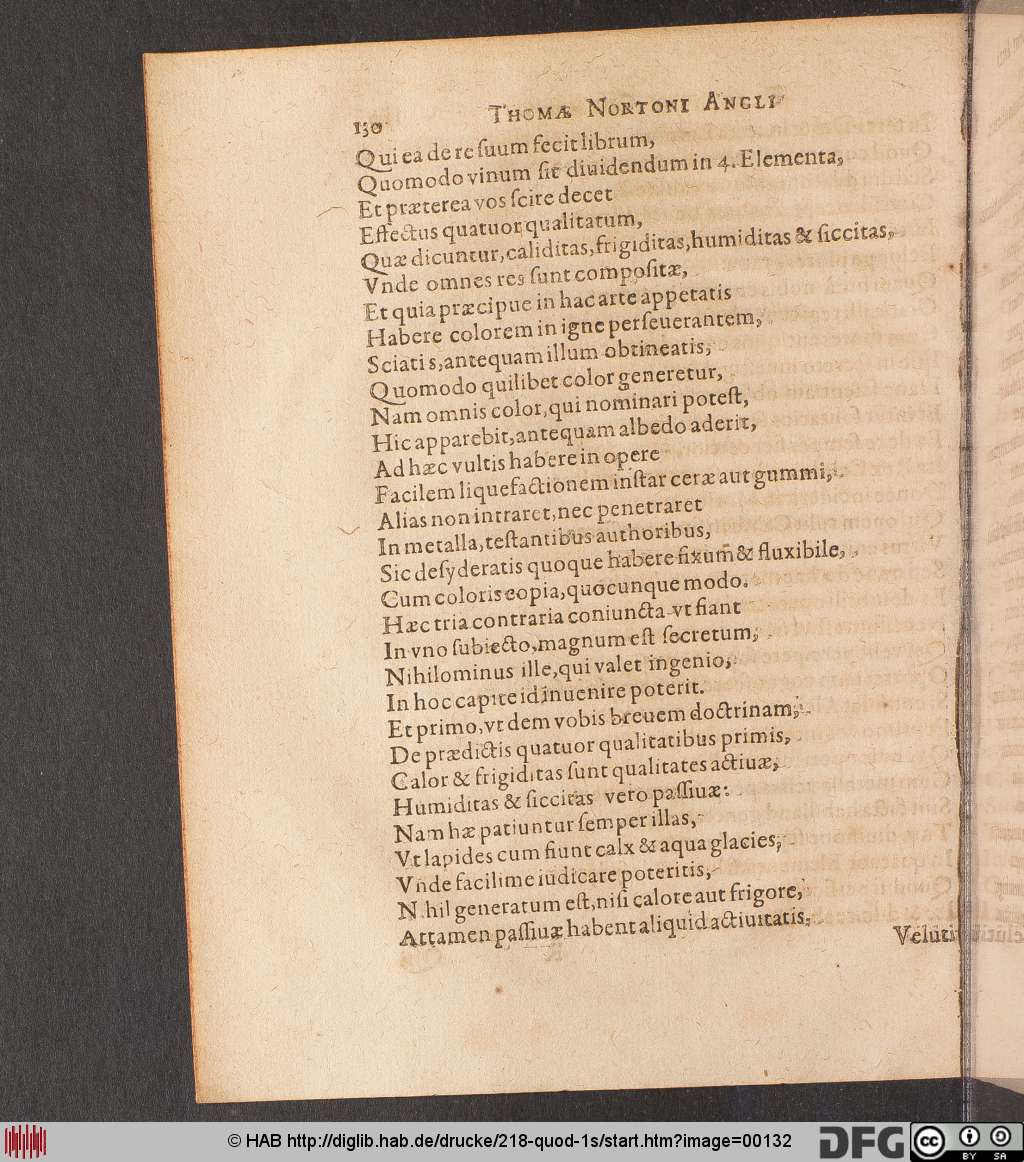 130 THOMÆ NORTONI ANGLI
Qui ea de re ſuum fecit librum,
Quomodo vinum ſit diuidendum in 4. Elementa,
Et præterea vos ſcire decet
Effectus quatuor qualitatum,
Quæ dicuntur, caliditas, frigiditas, humiditas & ſiccitas,
Vnde omnes res ſunt compoſitæ,
Et quia præcipue in hac arte appetatis
Habere colorem in igne perſeuerantem,
Sciatis, antequam illum obtineatis,
Quomodo quilibet color generetur,
Nam omnis color, qui nominari poteſt,
Hic apparebit, antequam albedo aderit,
Ad hæc vultis habere in opere
Facilem liquefactionem inſtar ceræ aut gummi,
Alias non intraret, nec penetraret
In metalla, teſtantibus authoribus,
Sic deſyderatis quoque habere fixum & fluxibile,
Cum coloris copia, quocunque modo.
Hæc tria contraria coniuncta vt fiant
In vno ſubiecto, magnum eſt ſecretum,
Nihilominus ille, qui valet ingenio,
In hoc capite id inuenire poterit.
Et primo, vt dem vobis breuem doctrinam,
De prædictis quatuor qualitatibus primis,
Calor & frigiditas ſunt qualitates actiuæ,
Humiditas & ſiccitas vero paſſiuæ:
Nam hæ patiuntur ſemper illas,
Vt lapides cum fiunt calx & aqua glacies,
Vnde facilime iudicare poteritis,
N.hil generatum eſt, niſi calore aut frigore,
Attamen paſſiuæ habent aliquid actiuitatis,
Veluti
© HAB http://diglib.hab.de/drucke/218-quod-1s/start.htm?image=00132
DFG
cc BY SA